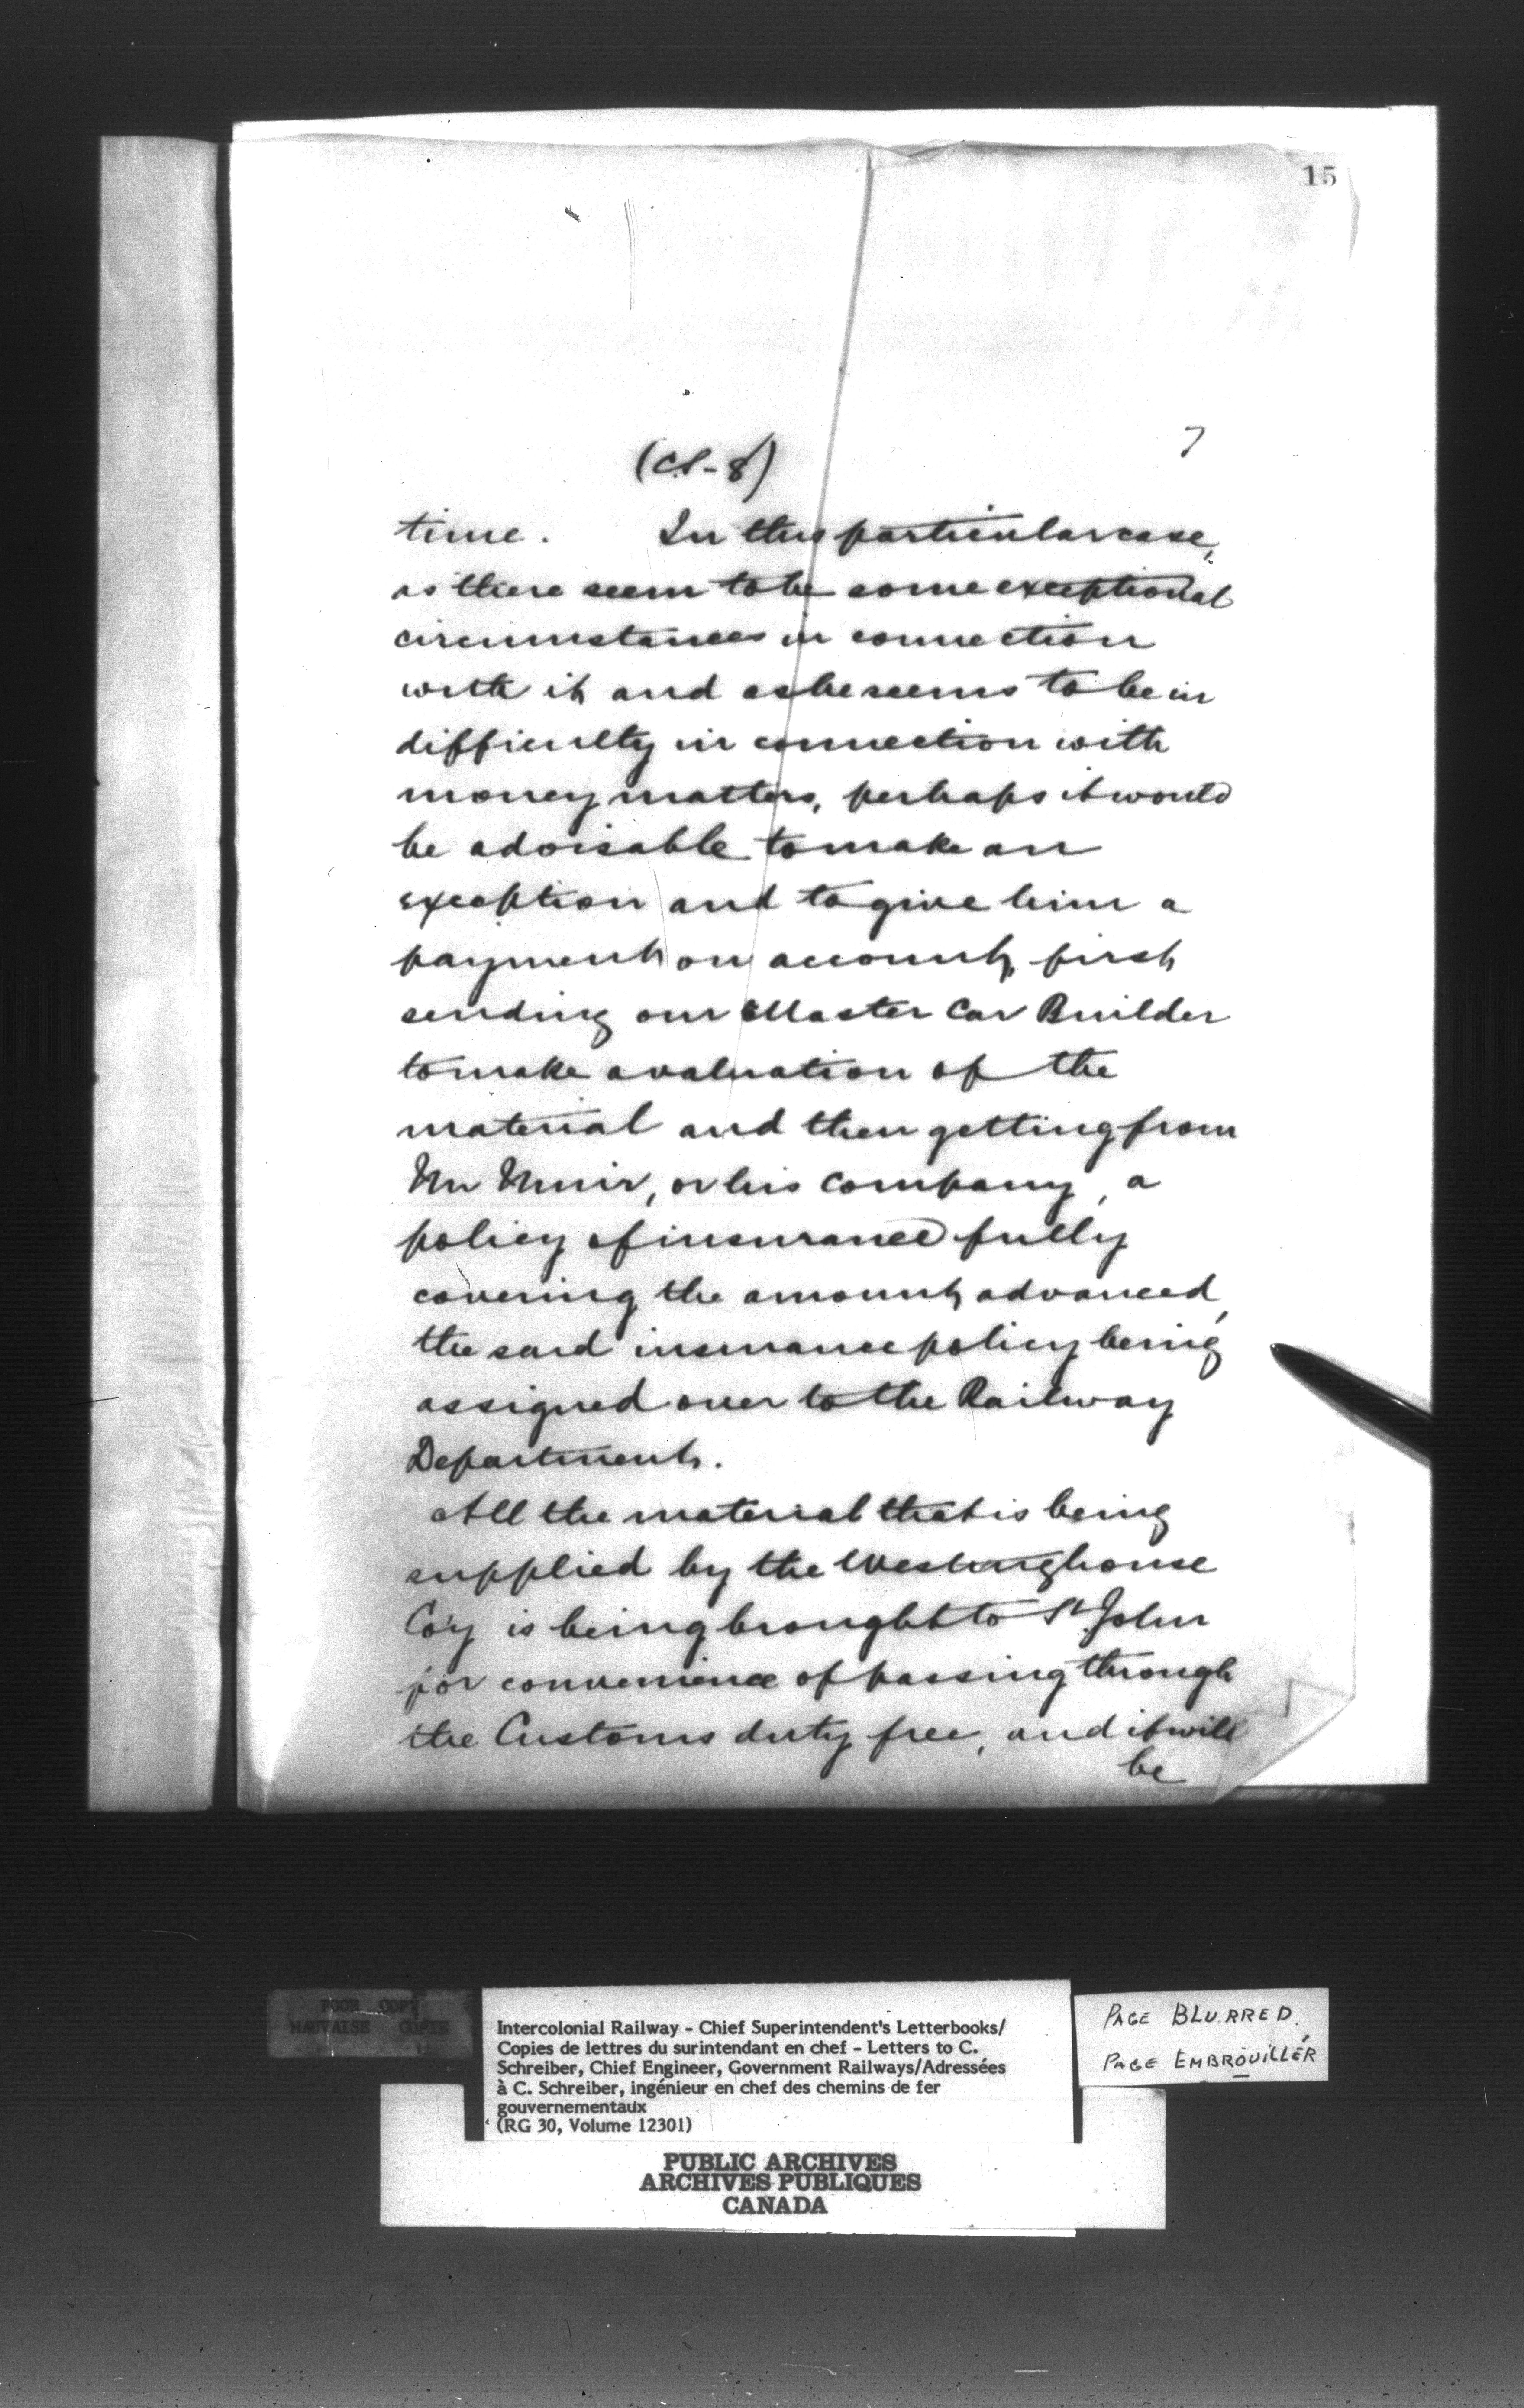 15
7
(C.S-8)
time. In this particular case,
as there seem to be some exceptional
circumstances in connection
with it and as he seems to be in
difficulty in connection with
money matters, perhaps it would
be advisable to make an
exception and to give him a
payment on account, first
sending our Master Car Builder
to make a valuation of the
material and then getting from
Mr Muir, or his company, a
policy of insurance fully
covering the amount advanced,
the said insurance policy being
assigned over to the Railway
Department.
All the material that is being
supplied by the Westinghouse
Co'y is being brought to St John
for convenience of passing through
the Customs duty free, and it will
be
POOR COPY
MAUVAISE COPIE
Intercolonial Railway - Chief Superintendent's Letterbooks/
Copies de lettres du surintendant en chef - Letters to C.
Schreiber, Chief Engineer, Government Railways/Adressées
à C. Schreiber, ingénieur en chef des chemins de fer
gouvernementaux
(RG 30, Volume 12301)
PAGE BLURRED.
PAGE EMBROUILLÉR
PUBLIC ARCHIVES
ARCHIVES PUBLIQUES
CANADA